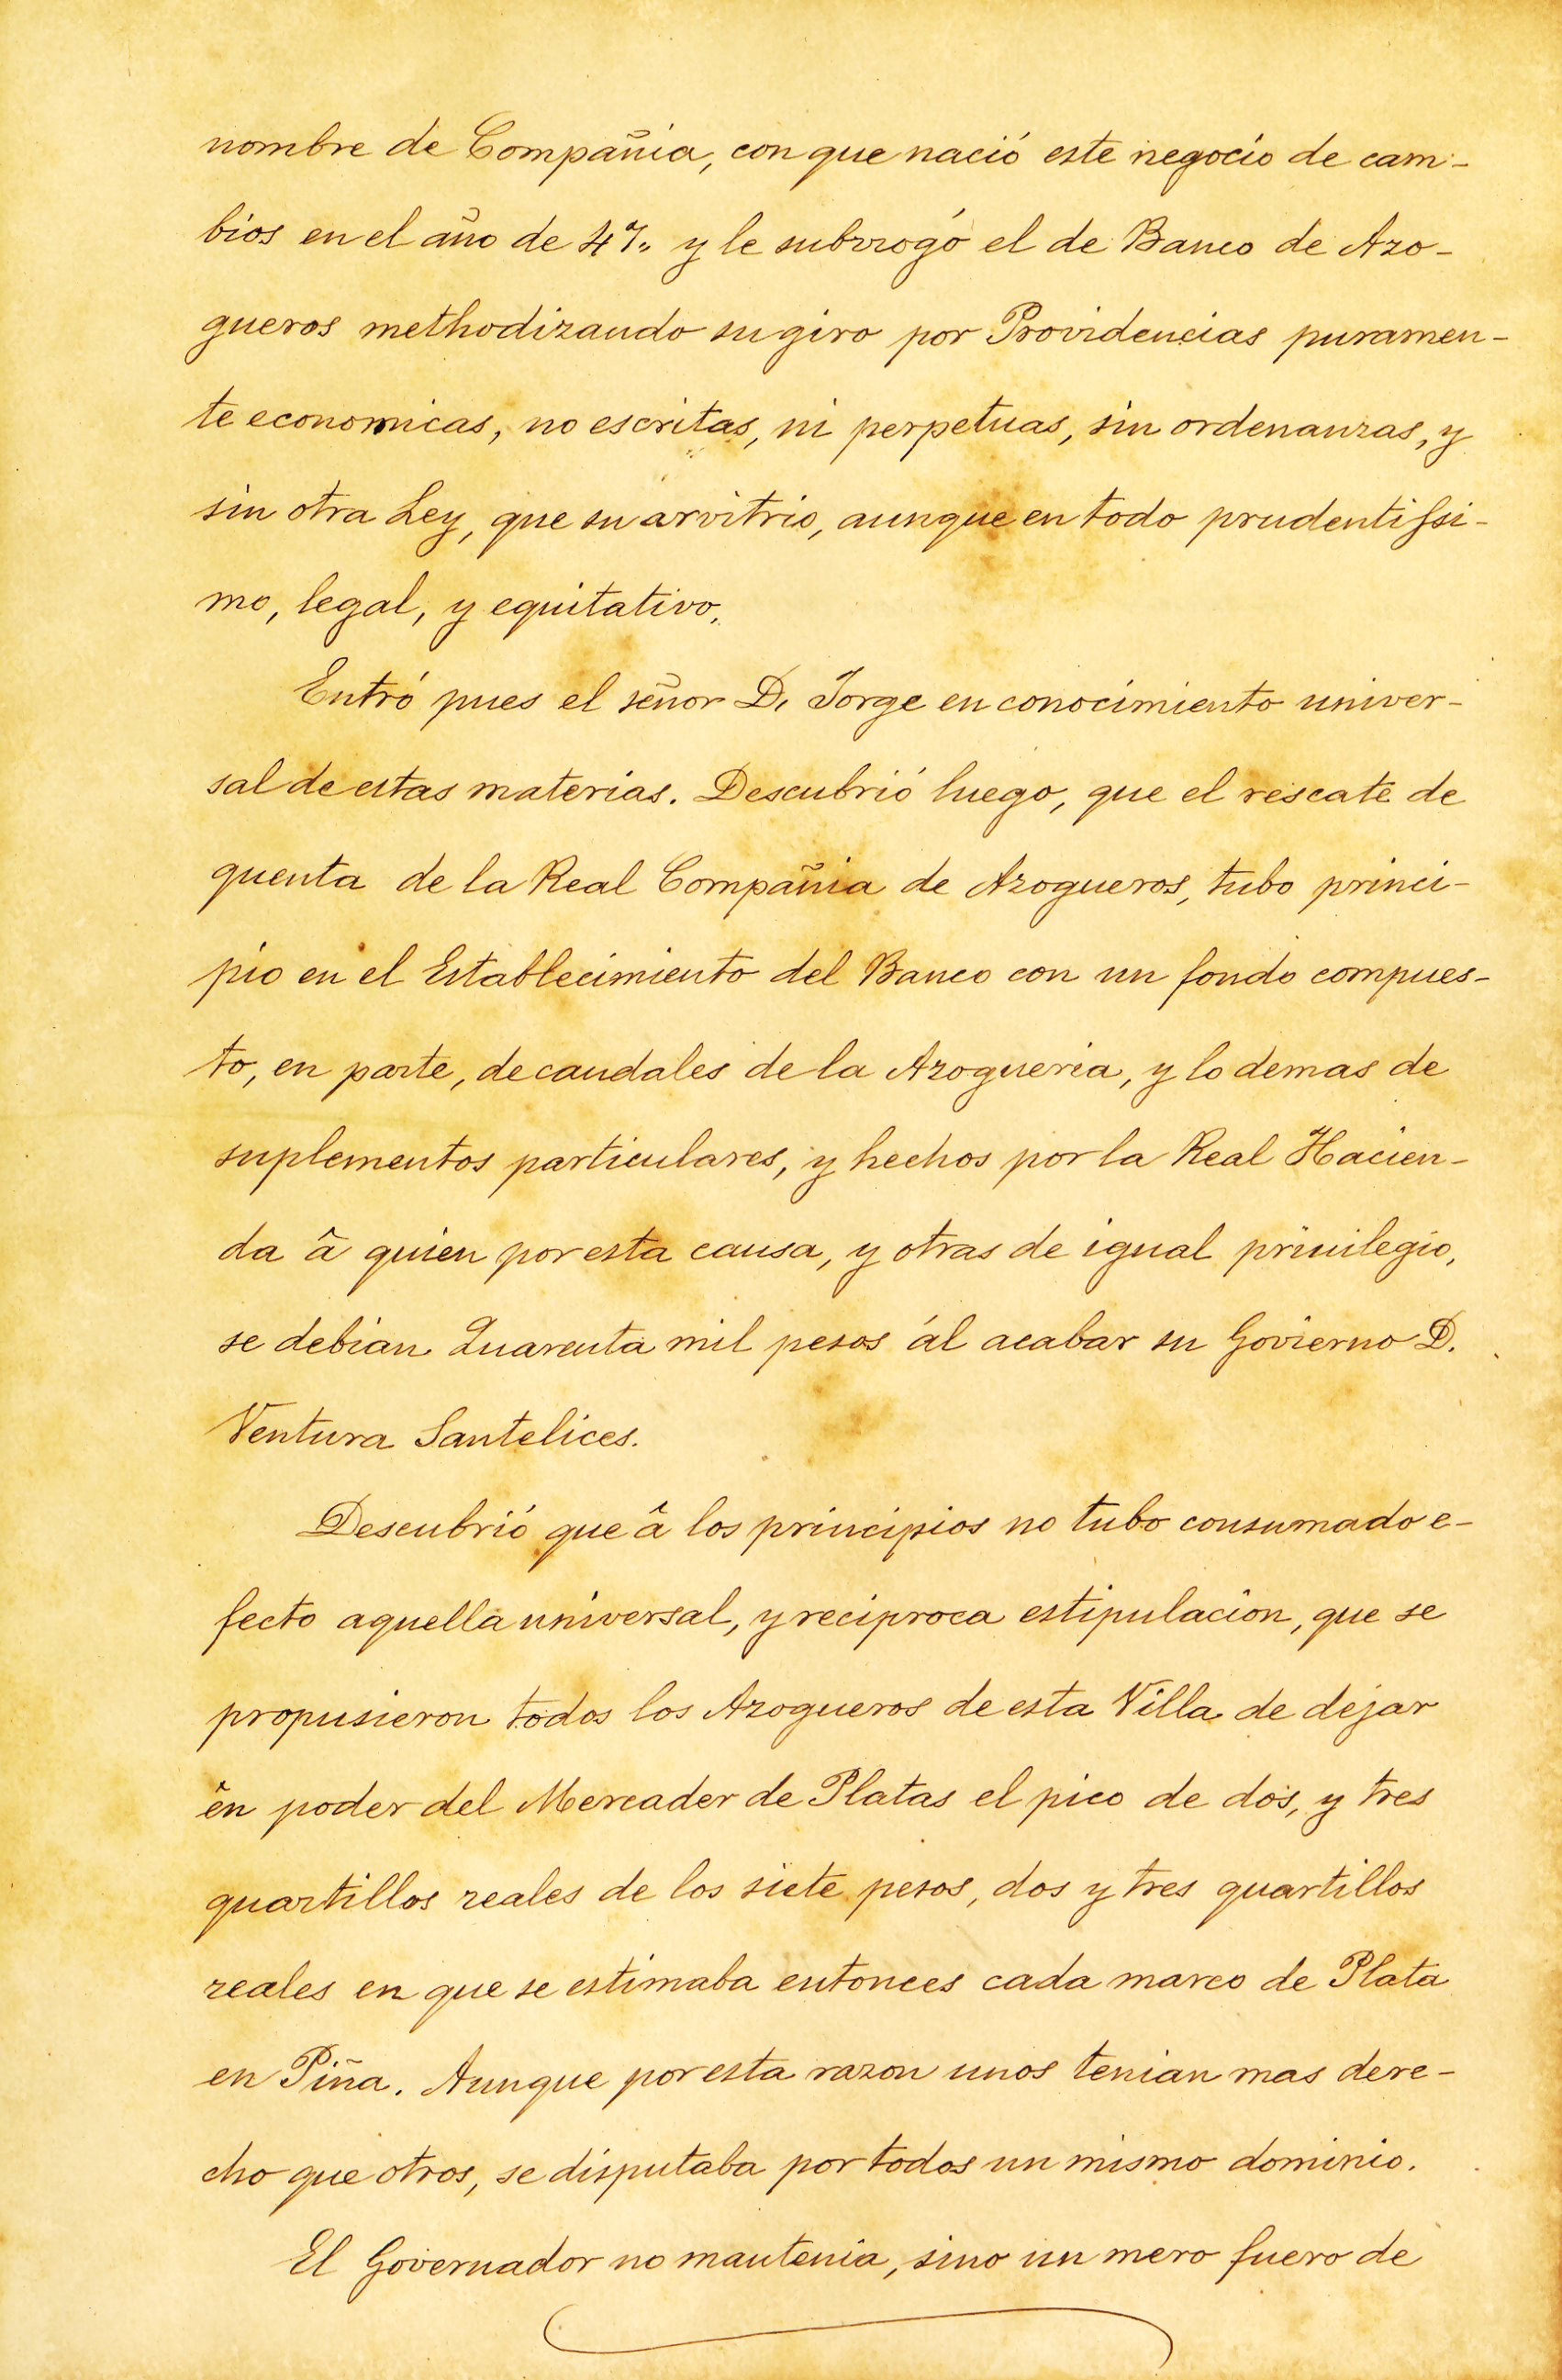 nombre de Compañia, con que nació este negocio de cam-
bios en el año de 47,, y le subrrogó el de Banco de Azo-
gueros methodizando su giro por Providencias puramen-
te economicas, no escritas, ni perpetuas, sin ordenanzas, y
sin otra Ley, que su arvitrio, aunque en todo prudentissi-
mo, legal, y equitativo,
Entró pues el señor D. Jorge en conocimiento univer-
sal de estas materias. Descubrió luego, que el rescate de
quenta de la Real Compañia de Azogueros, tubo princi-
pio en el Establecimiento del Banco con un fondo compues-
to, en parte, de caudales de la Azogueria, y lo demas de
suplementos particulares, y hechos por la Real Hacien-
da â quien por esta causa, y otras de igual priuilegio,
se debian Quarenta mil pesos ál acabar su Govierno D.
Ventura Santelices.
Descubrió que â los principios no tubo consumado e-
fecto aquella universal, y reciproca estipulacion, que se
propusieron todos los Azogueros de esta Villa de dejar
ên poder del Mercader de Platas el pico de dos, y tres
quartillos reales de los siete pesos, dos y tres quartillos
reales en que se estimaba entonces cada marco de Plata
en Piña. Aunque por esta razon unos tenian mas dere-
cho que otros, se disputaba por todos un mismo dominio.
El Governador no mantenia, sino un mero fuero de